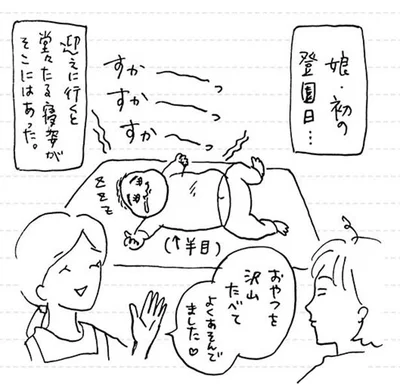 娘・初の
登園日…
すかー～っ
すかー～っ
すかー～っ
迎えに行くと
堂々たる寝姿が
そこにはあった。
zzz
(↑半目)
おやつを
沢山
たべて
よくあそんで
ました♡